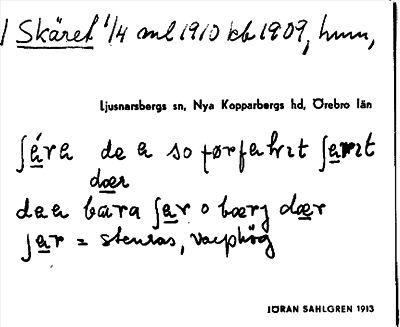 Skäret 1/4 ml 1910 kb 1909, hmn,
Ljusnarsbergs sn, Nya Kopparbergs hd, Örebro län
ʃära de a so førfaḷıt ʃarıt
dær
dea bara ʃar o bærj dær
ʃar = stenras, varphög
JÖRAN SAHLGREN 1913